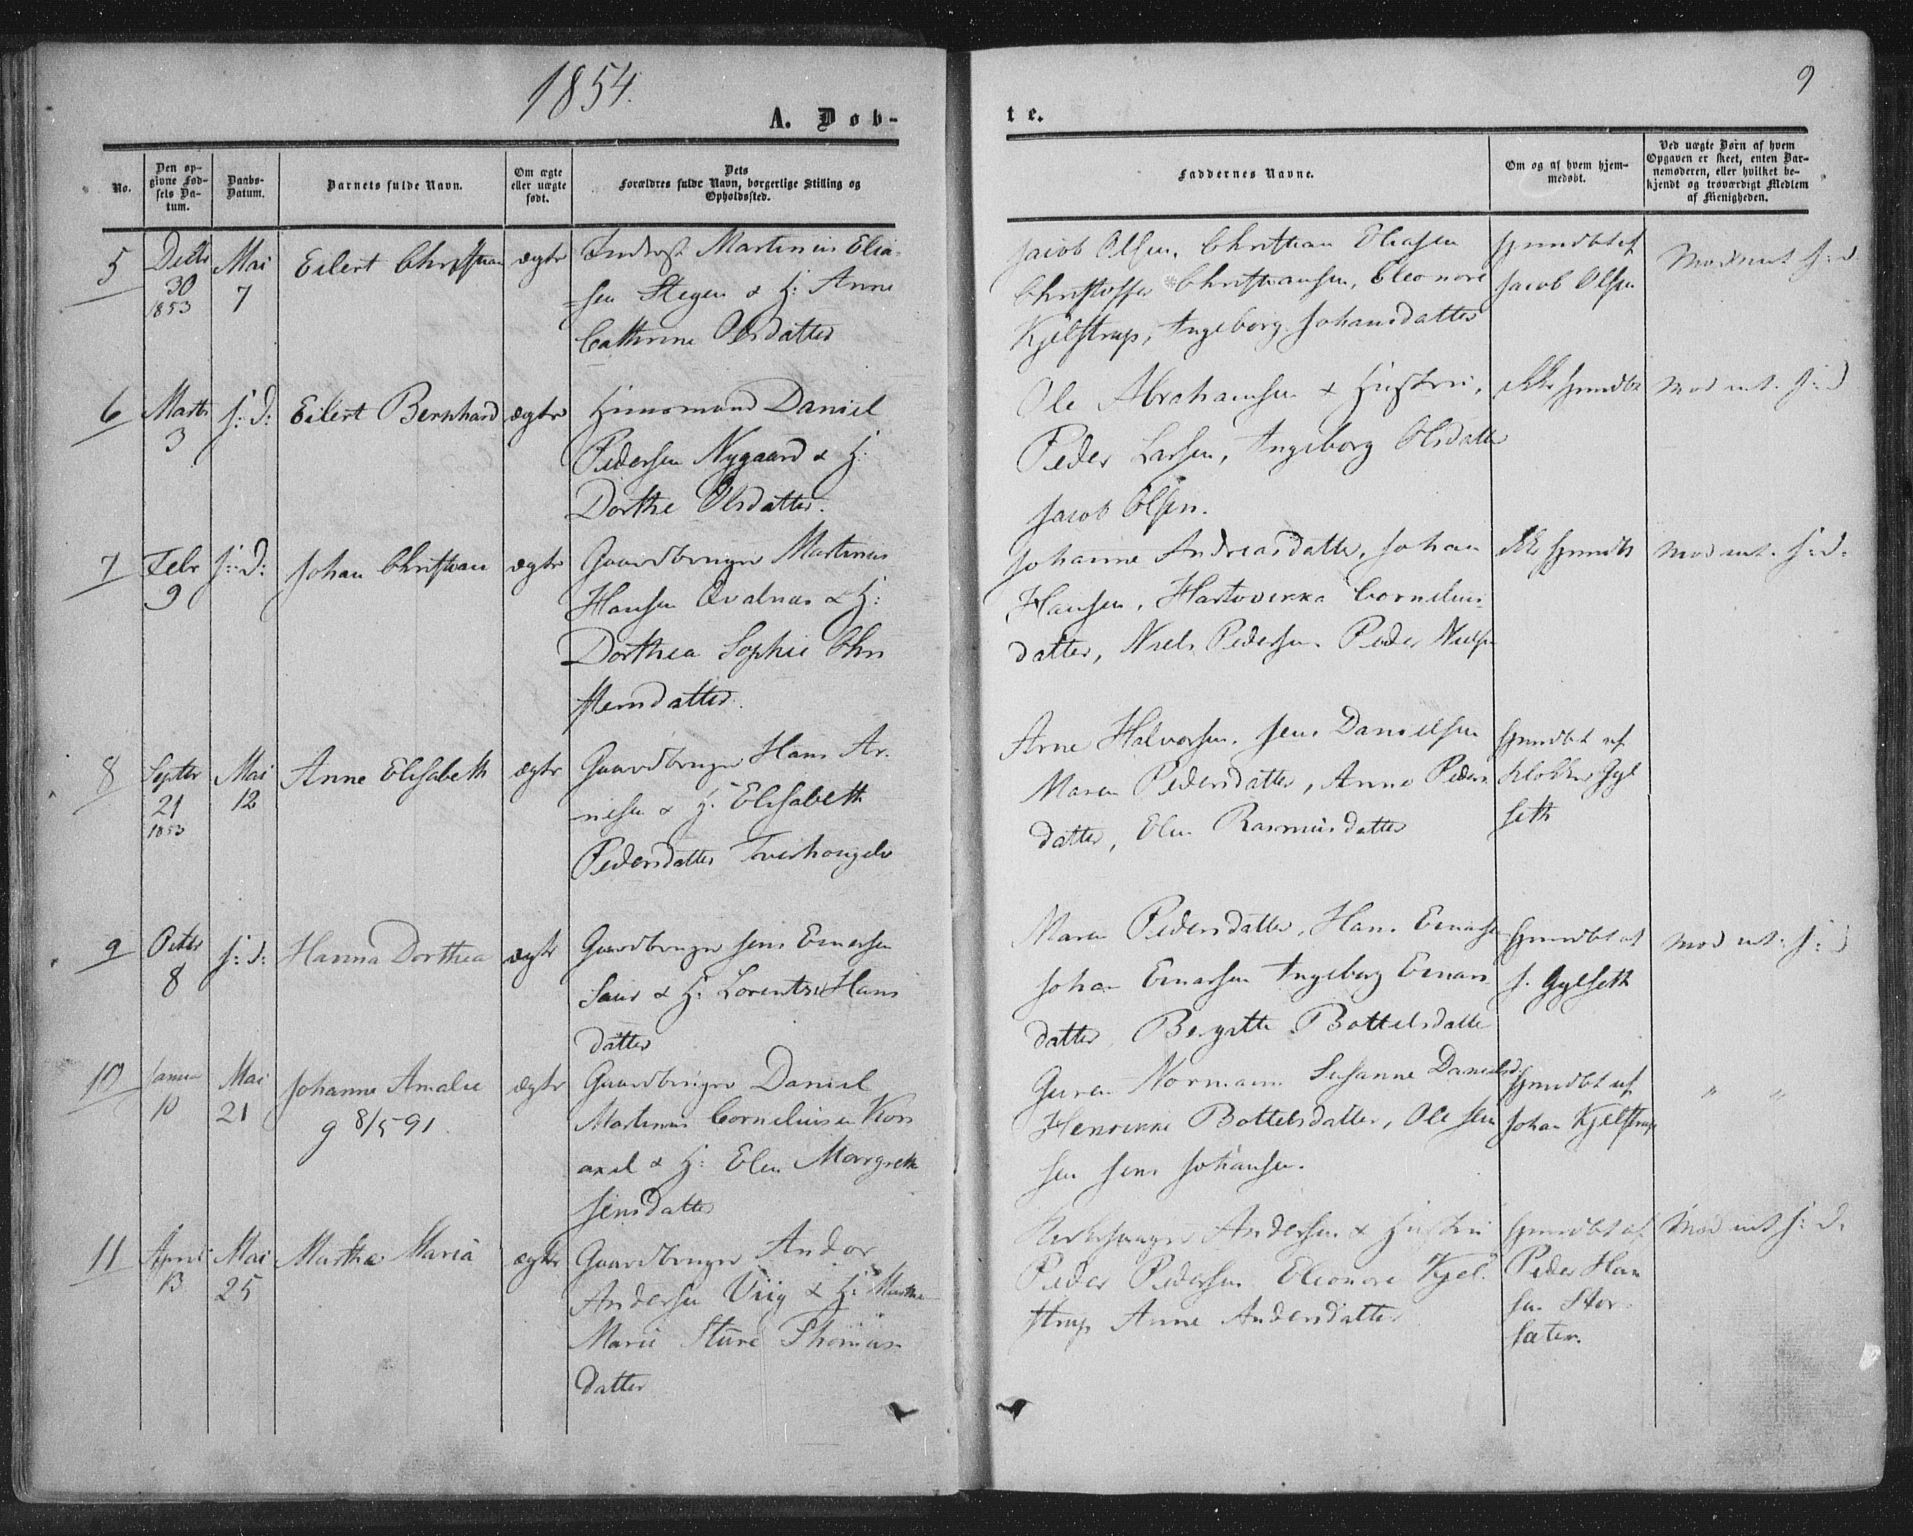 1854.
9
A. Døb-
te.
No.
Den op-
givne Fød-
sels Da-
tum.
Daabs-
Datum.
Barnets fulde Navn.
Om ægte
eller uægte
født.
Dets
Forældres fulde Navn, borgerlige Stilling og
Opholdssted.
Faddernes Navne.
Om og af hvem hjem-
medøbt.
Ved uægte Børn af hvem
Opgaven er skeet, enten Bar-
nemoderen, eller hvilket be-
kjendt og troværdigt Medlem
af Menigheden.
5
30
1853
Mai
7
Eilert Christian
ægte
Inderst Martinus Elia-
sen Stegen & H: Anne
Cathrine Olsdatter
Jacob Olsen, Christian Eliasen
Christoffer Christiansen, Eleonore
Kjelstrup, Ingeborg Johansdatter
hjemdbt af
Jacob Olsen
6
Marts
3
s: d:
Eilert Bernhard
ægte
Huusmand Daniel
Pedersen Nygaard & H:
Dorthe Olsdatter.
Ole Abrahamsen & Hustru,
Peder Larsen, Ingeborg Olsdatter
Jacob Olsen.
ikke hjemdbt
7
Febr
9
s: d:
Johan Christian
ægte
Gaardbruger Martinus
Hansen Qvalnæs & H:
Dorthea Sophie Chri
stensdatter.
Johanne Andreasdatter, Johan
Hansen, Hartvikka Cornelius-
datter, Niels Pedersen Peder Nielsen
ikke hjemdbt
8
Septbr
21
1853
Mai
12
Anne Elisabeth
ægte
Gaardbruger Hans Ar-
nesen & H: Elisabeth
Pedersdatter
Arne Halvorsen, Jens Danielsen
Maren Pedersdatter, Anne Peders
datter, Elen Rasmusdatter
hjemdbt af
Klokker Gyl
seth
9
Octbr
8
s: d:
Hanna Dorthea
ægte
Gaardbruger Jens Einersen
& H: Lorentze Hans
datter
Maren Pedersdatter, Hans Einarsen
Johan Einarsen Ingeborg Einars
datter, Bergitte Bottelsdatter
hjemdbt af
J. Gylseth
10
Januar
10
Mai
21
Johanne Amalie
g 8/5 91.
ægte
Gaardbruger Daniel
Martinus Corneliusen Kors
& H: Elen Margrethe
Jensdatter
Normann Susanne Danielsd.
Henrikke Bottelsdatter, Ole Jen
sen Jens Johansen.
hjemdbt af
Johan Kjelstrup
" "
11
April
13
Mai
25
Martha Maria
ægte
Gaardbruger Andor
Andersen Viig & H: Martha
Marie Sture Thomas
datter
Kirkesanger Andersen & Hustru
Peder Pedersen Eleonore Kjel-
strup Anne Andersdatter
hjemdbt af
Peder Han
sen Stor-
sæter.